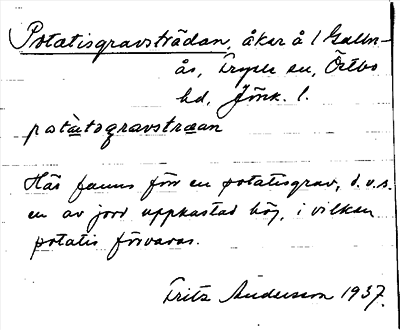 Potatisgravsträdan, åker å 1 Galln-
ås, Tryple sn, Östbo
hd, Jönk. l.
potàtogravstræan
Här fanns förr en potatisgrav, d.v.s.
en av jord uppkastad hög, i vilken
potatis förvaras.
Fritz Andersson 1937.